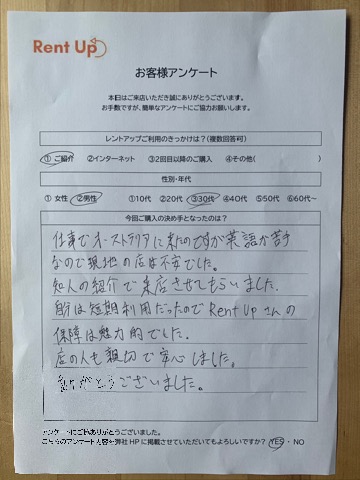 Rent Up
お客様アンケート
本日はご来店いただき誠にありがとうございます。
お手数ですが、簡単なアンケートにご協力お願いします。
レントアップご利用のきっかけは?(複数回答可)
①ご紹介 ②インターネット ③2回目以降のご購入 ④その他( )
性別・年代
①女性 ②男性 ①10代 ②20代 ③30代 ④40代 ⑤50代 ⑥60代~
今回ご購入の決め手となったのは?
仕事でオーストラリアに来たのですが英語が苦手
なので現地の店は不安でした。
知人の紹介で来店させてもらいました。
自分は短期利用だったのでRent Upさんの
保障は魅力的でした。
店の人も親切で安心しました。
ありがとうございました。
アンケートにご協力ありがとうございました。
こちらのアンケート内容を弊社HPに掲載させていただいてもよろしいですか? YES・NO